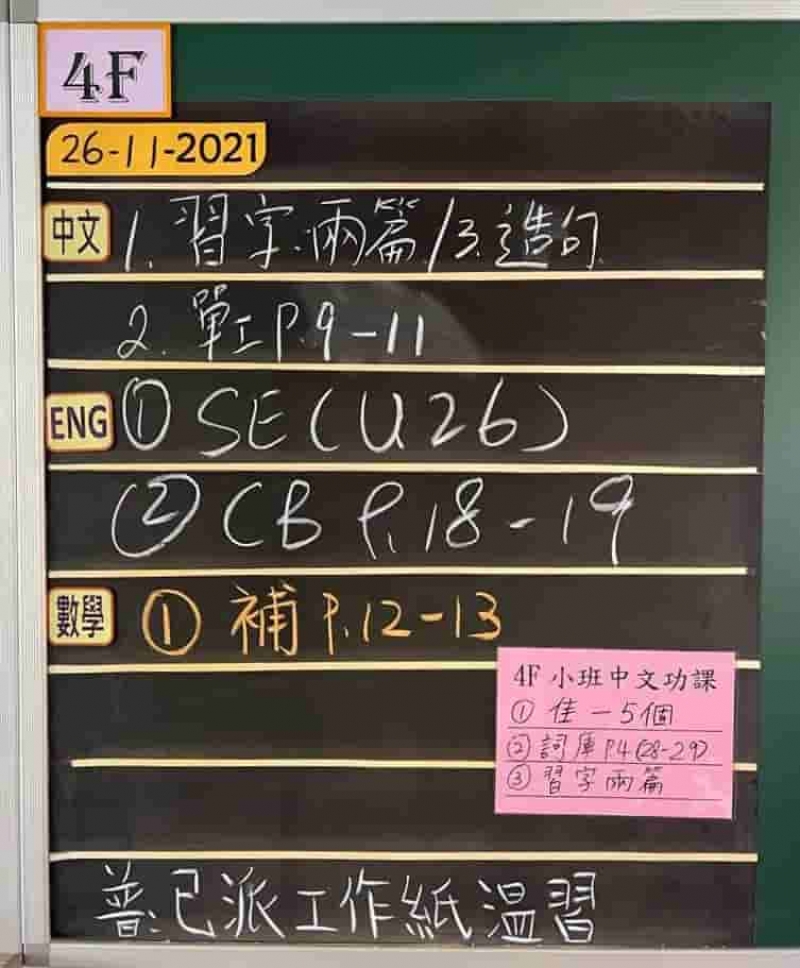 4F
26-11-2021
中文 1. 習字兩篇/3.造句
2. 單工P.9-11
ENG ① SE(U.26)
② CB P.18-19
數學 ① 補 P.12-13
4F 小班中文功課
① 佳一5個
② 詞庫P.4(28-29)
③ 習字兩篇
普:已派工作紙溫習